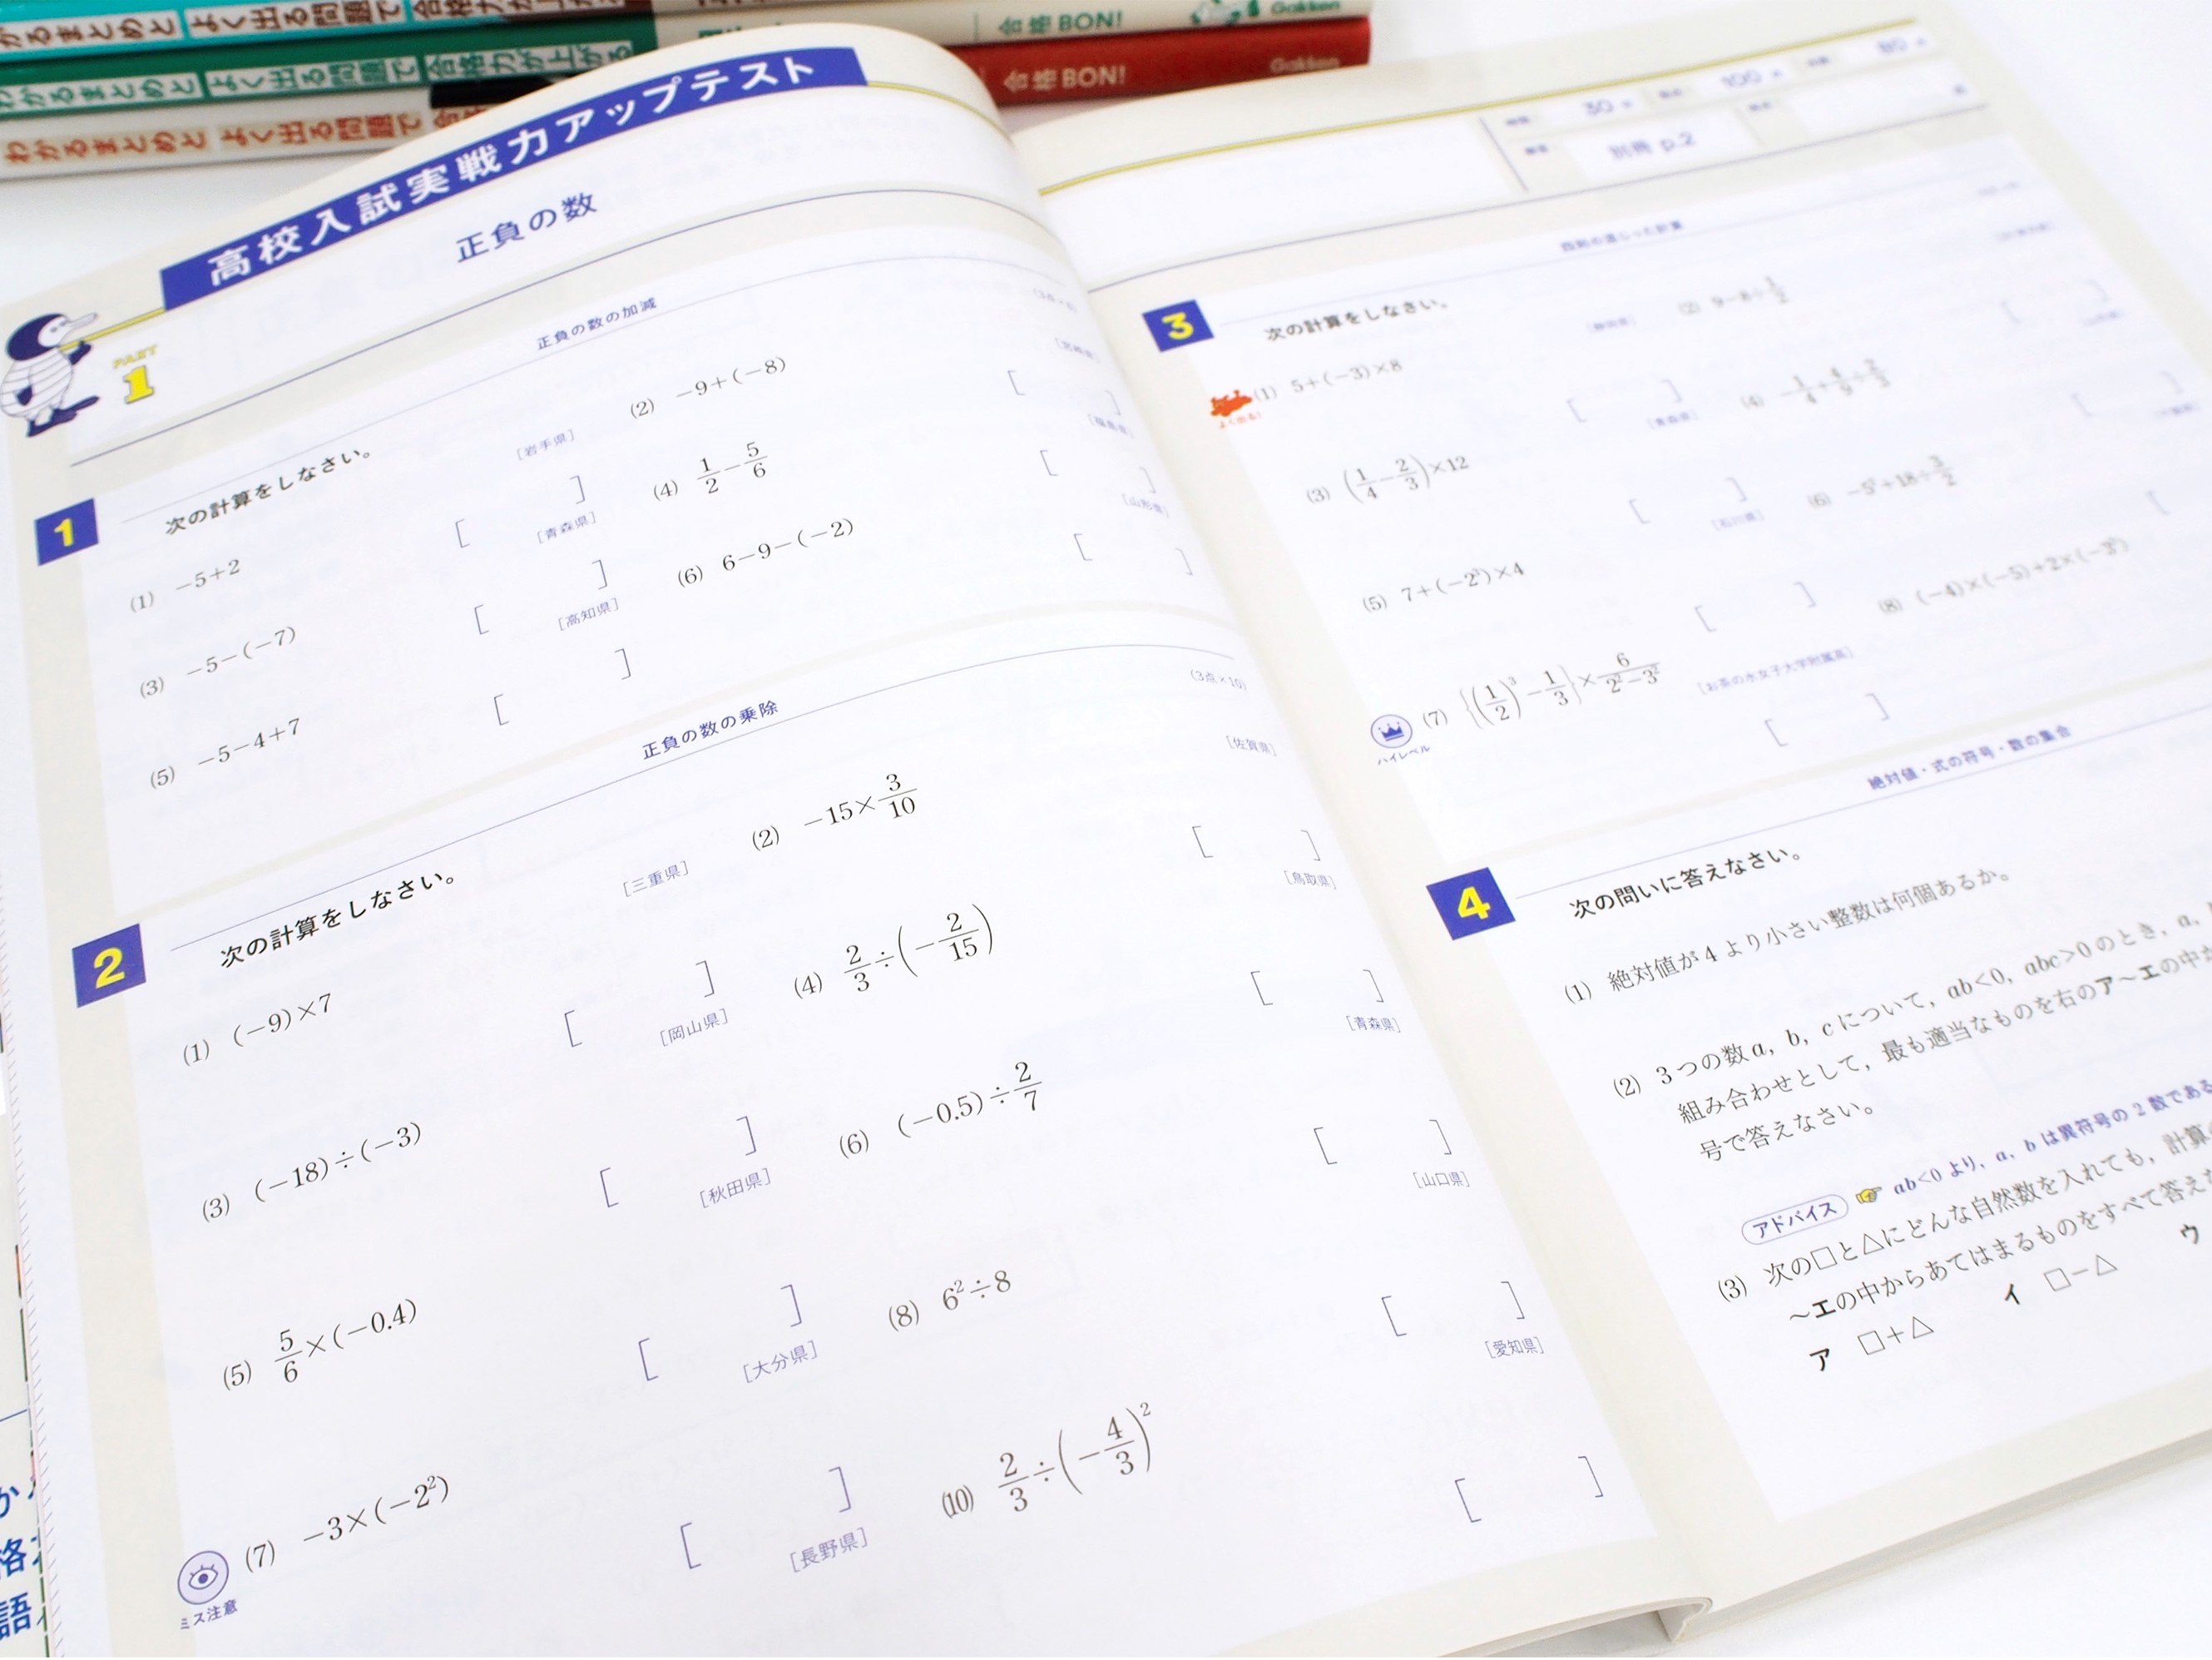 わかるまとめと よく出る問題で 合格力が上がる
合格BON! Gakken
わかるまとめと よく出る問題で 合格力が上がる
合格BON! Gakken
わかるまとめと よく出る問題で
高校入試実戦力アップテスト
PART 1
正負の数
1
正負の数の加減
次の計算をしなさい。
(1) −5+2
[岩手県]
(2) −9+(−8)
(3) −5−(−7)
[青森県]
(4) 1/2−5/6
[福島県]
(5) −5−4+7
[高知県]
(6) 6−9−(−2)
[山形県]
2
正負の数の乗除
(3点×10)
次の計算をしなさい。
(1) (−9)×7
[三重県]
(2) −15×3/10
[佐賀県]
(3) (−18)÷(−3)
[岡山県]
(4) 2/3÷(−2/15)
[鳥取県]
(5) 5/6×(−0.4)
[秋田県]
(6) (−0.5)÷2/7
[青森県]
ミス注意
(7) −3×(−2²)
[大分県]
(8) 6²÷8
[山口県]
[長野県]
(10) 2/3÷(−4/3)²
[愛知県]
別冊 p.2
3
四則の混じった計算
次の計算をしなさい。
よく出る!
(1) 5+(−3)×8
(2) 9−8÷1/2
(3) (1/4−2/3)×12
[青森県]
(4) −1/4+4/9÷2/3
(5) 7+(−2³)×4
[石川県]
(6) −5²+18÷3/2
ハイレベル
(7) {(1/2)³−1/3}×6/(2²−3²)
[お茶の水女子大学附属高]
(8) (−4)×(−5)+2×(−3²)
4
絶対値・式の符号・数の集合
次の問いに答えなさい。
(1) 絶対値が4より小さい整数は何個あるか。
(2) 3つの数a, b, cについて, ab<0, abc>0のとき, a,
組み合わせとして, 最も適当なものを右のア〜エの中か
号で答えなさい。
アドバイス ab<0より, a, bは異符号の2数である
(3) 次の□と△にどんな自然数を入れても, 計算
〜エの中からあてはまるものをすべて答え
ア □+△ イ □−△ ウ